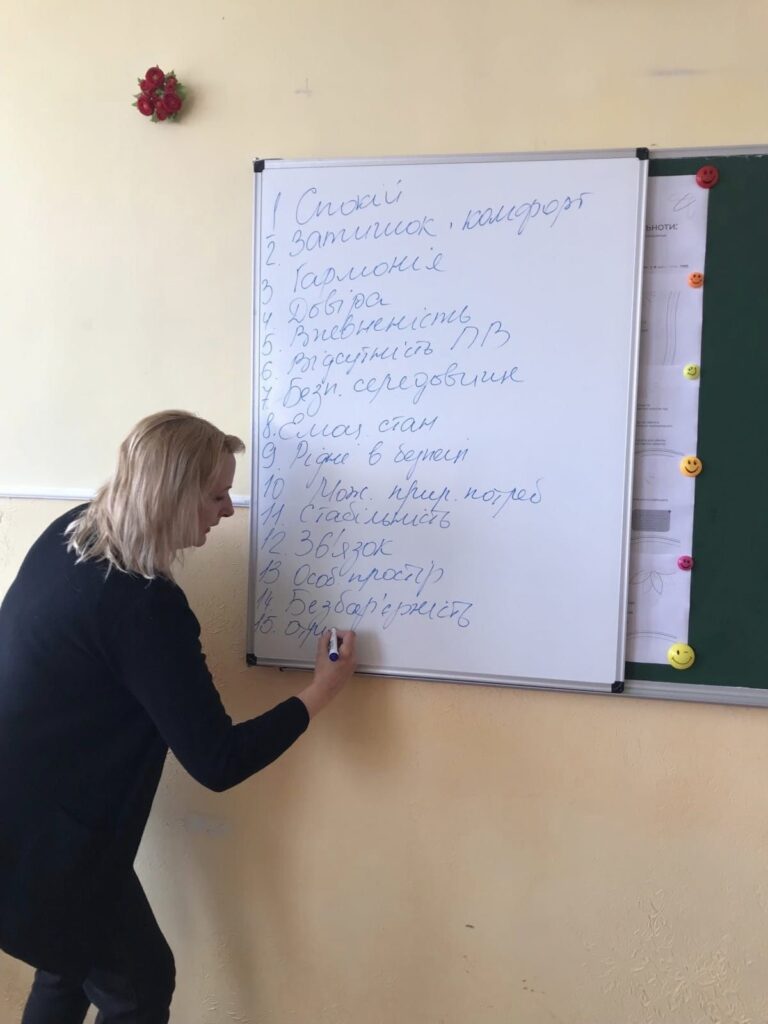 1 Спокій
2. Затишок, комфорт
3 Гармонія
4 Довіра
5. Впевненість
6. Відсутність ПВ
7. Безп. середовищ
8. Емоц. стан
9. Рідне в безпеці
10 Мож. прир. потреб
11. Стабільність
12. Зв'язок
13 Особ простір
14 Безбар'єрність
15.
ЬНОТИ: